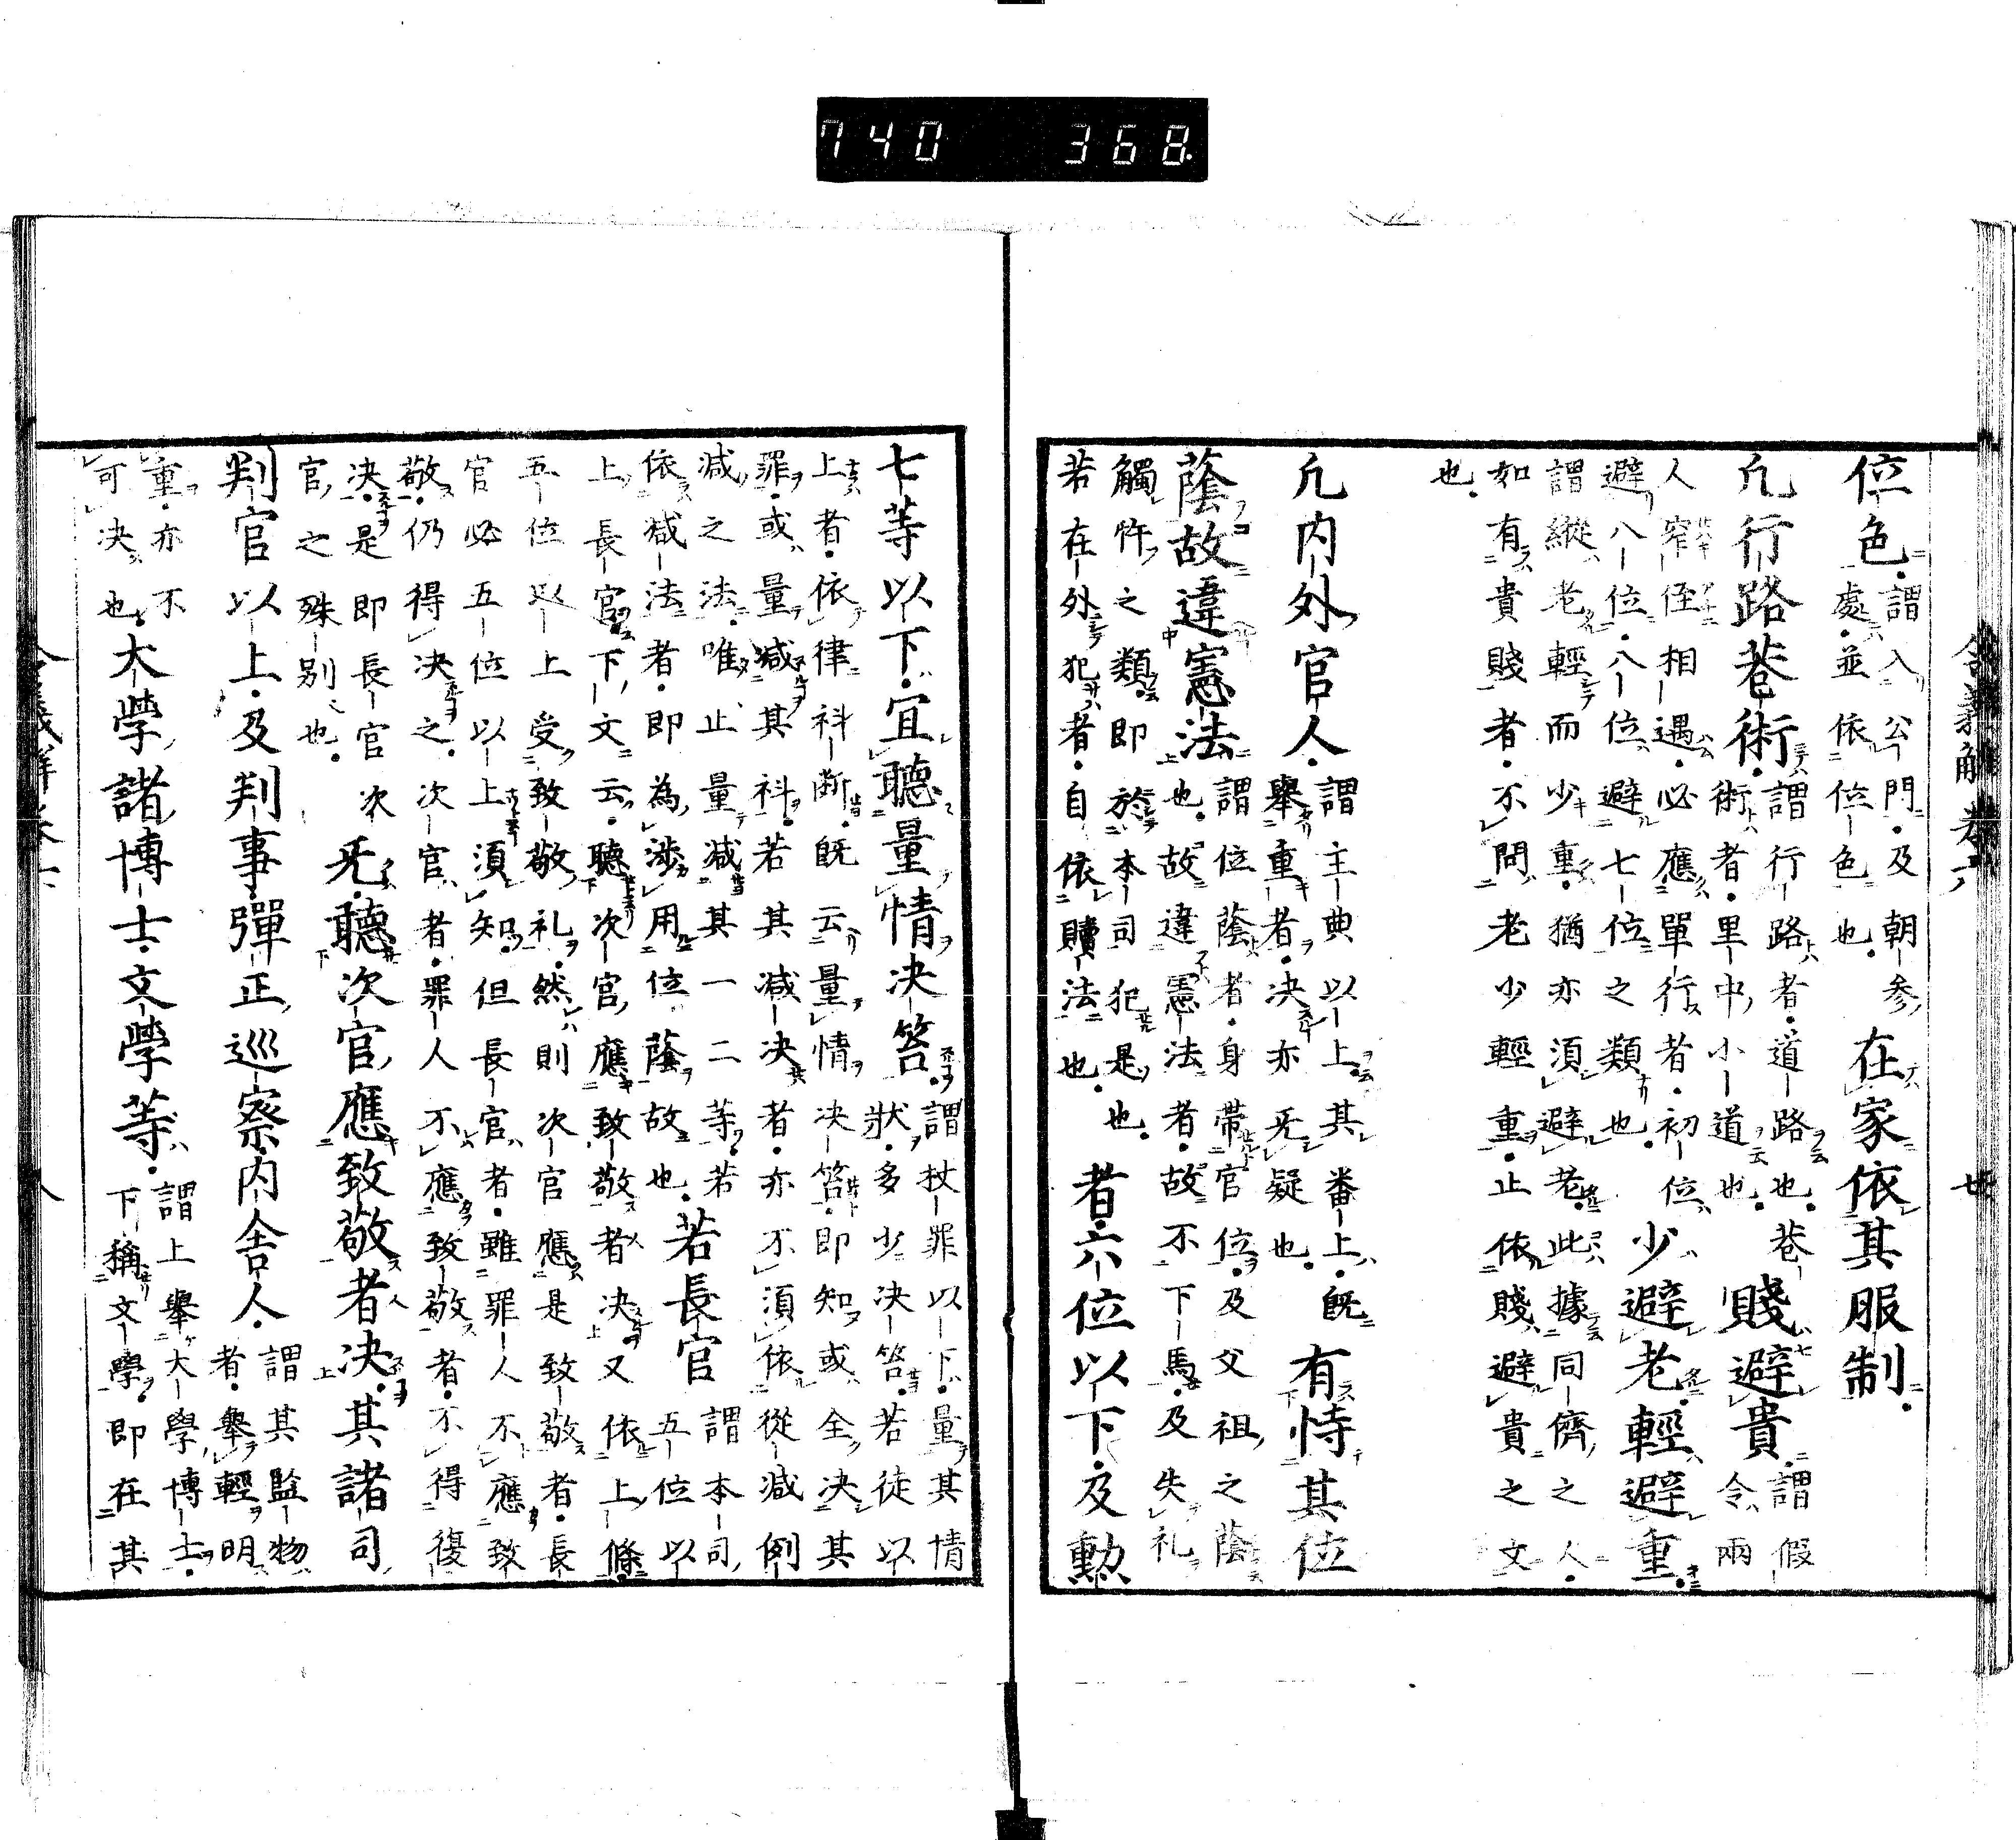 740 368
位色。謂入公門。及朝參
處。並依位色也。在家依其服制。
凡行路巷術。謂行路者。道路也。巷
術者。里中小道也。賤避貴。謂假
令兩
人窄侄相遇。必應單行者。初位
避八位。八位避七位之類也。少避老。輕避重。
謂縱老輕而少重。猶亦須避老。此據同儕之人。
如有貴賤者。不問老少輕重。止依賤避貴之文
也。
凡內外官人。謂主典以上。其番上。既
舉重者。決亦旡疑也。有恃其位
蔭故違憲法。謂位蔭者。身帶官位。及父祖之蔭
也。故違憲法者。故不下馬。及失礼
觸忤之類。即於本司犯是也。
若在外犯者。自依贖法也。者。六位以下。及勲
七等以下。宜聽量情決笞。謂杖罪以下。量其情
狀。多少決笞。若徒以
上者。依律科断。既云量情決笞。即知或全決其
罪。或量減其科。若其減決者。亦不須依從減例
減之法。唯止量減其一二等。若
依減法者。即為涉用位蔭故也。若長官謂本司
五位以
上長官。下文云。聽次官應致敬者決。又依上條。
五位以上受致敬礼。然則次官應是致敬者。長
官必五位以上。須知。但長官者。雖罪人不應致
敬。仍得決之。次官者。罪人不應致敬者。不得復
決。是即長官次
官之殊別也。旡。聽次官應致敬者決。其諸司
判官以上。及判事彈正巡察內舍人。謂其監物
者。舉輕明
重。亦不
可決也。大學諸博士。文學等。謂上舉大學博士。
下稱文學。即在其
令義解卷六 廿